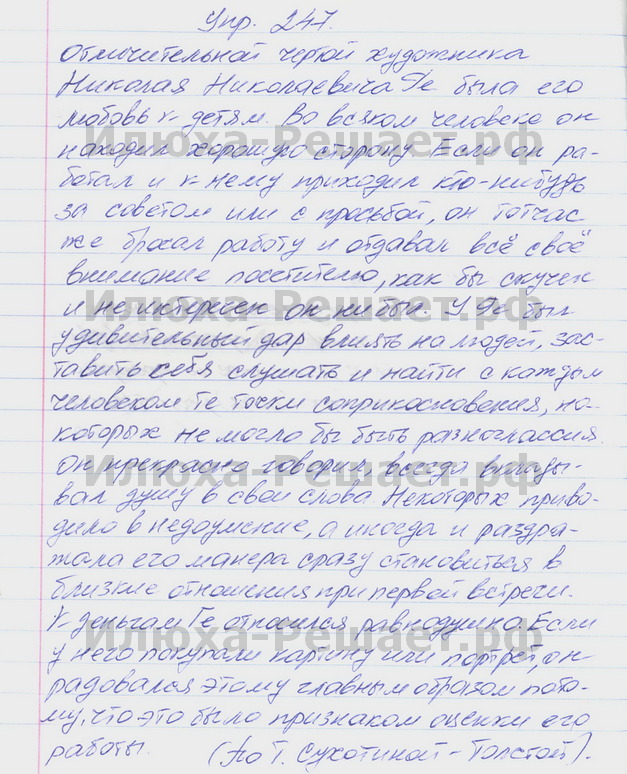 Упр. 247.
Отличительной чертой художника
Николая Николаевича Ге была его
любовь к детям. Во всяком человеке он
находил хорошую сторону. Если он ра-
ботал и к нему приходил кто-нибудь
за советом или с просьбой, он тотчас
же бросал работу и отдавал всё своё
внимание посетителю, как бы скучен
и неинтересен он ни был. У Ге был
удивительный дар влиять на людей, зас-
тавить себя слушать и найти с каждым
человеком те точки соприкосновения, на
которых не могло бы быть разногласия.
Он прекрасно говорил, всегда вклады-
вал душу в свои слова. Некоторых приво-
дило в недоумение, а иногда и раздра-
жала его манера сразу становиться в
близкие отношения при первой встречи.
К деньгам Ге относился равнодушно. Если
у него покупали картину или портрет, он
радовался этому главным образом пото-
му, что это было признаком оценки его
работы. (По Т. Сухотиной-Толстой).
Илюха-Решает.рф
Илюха-Решает.рф
Илюха-Решает.рф
Илюха-Решает.рф